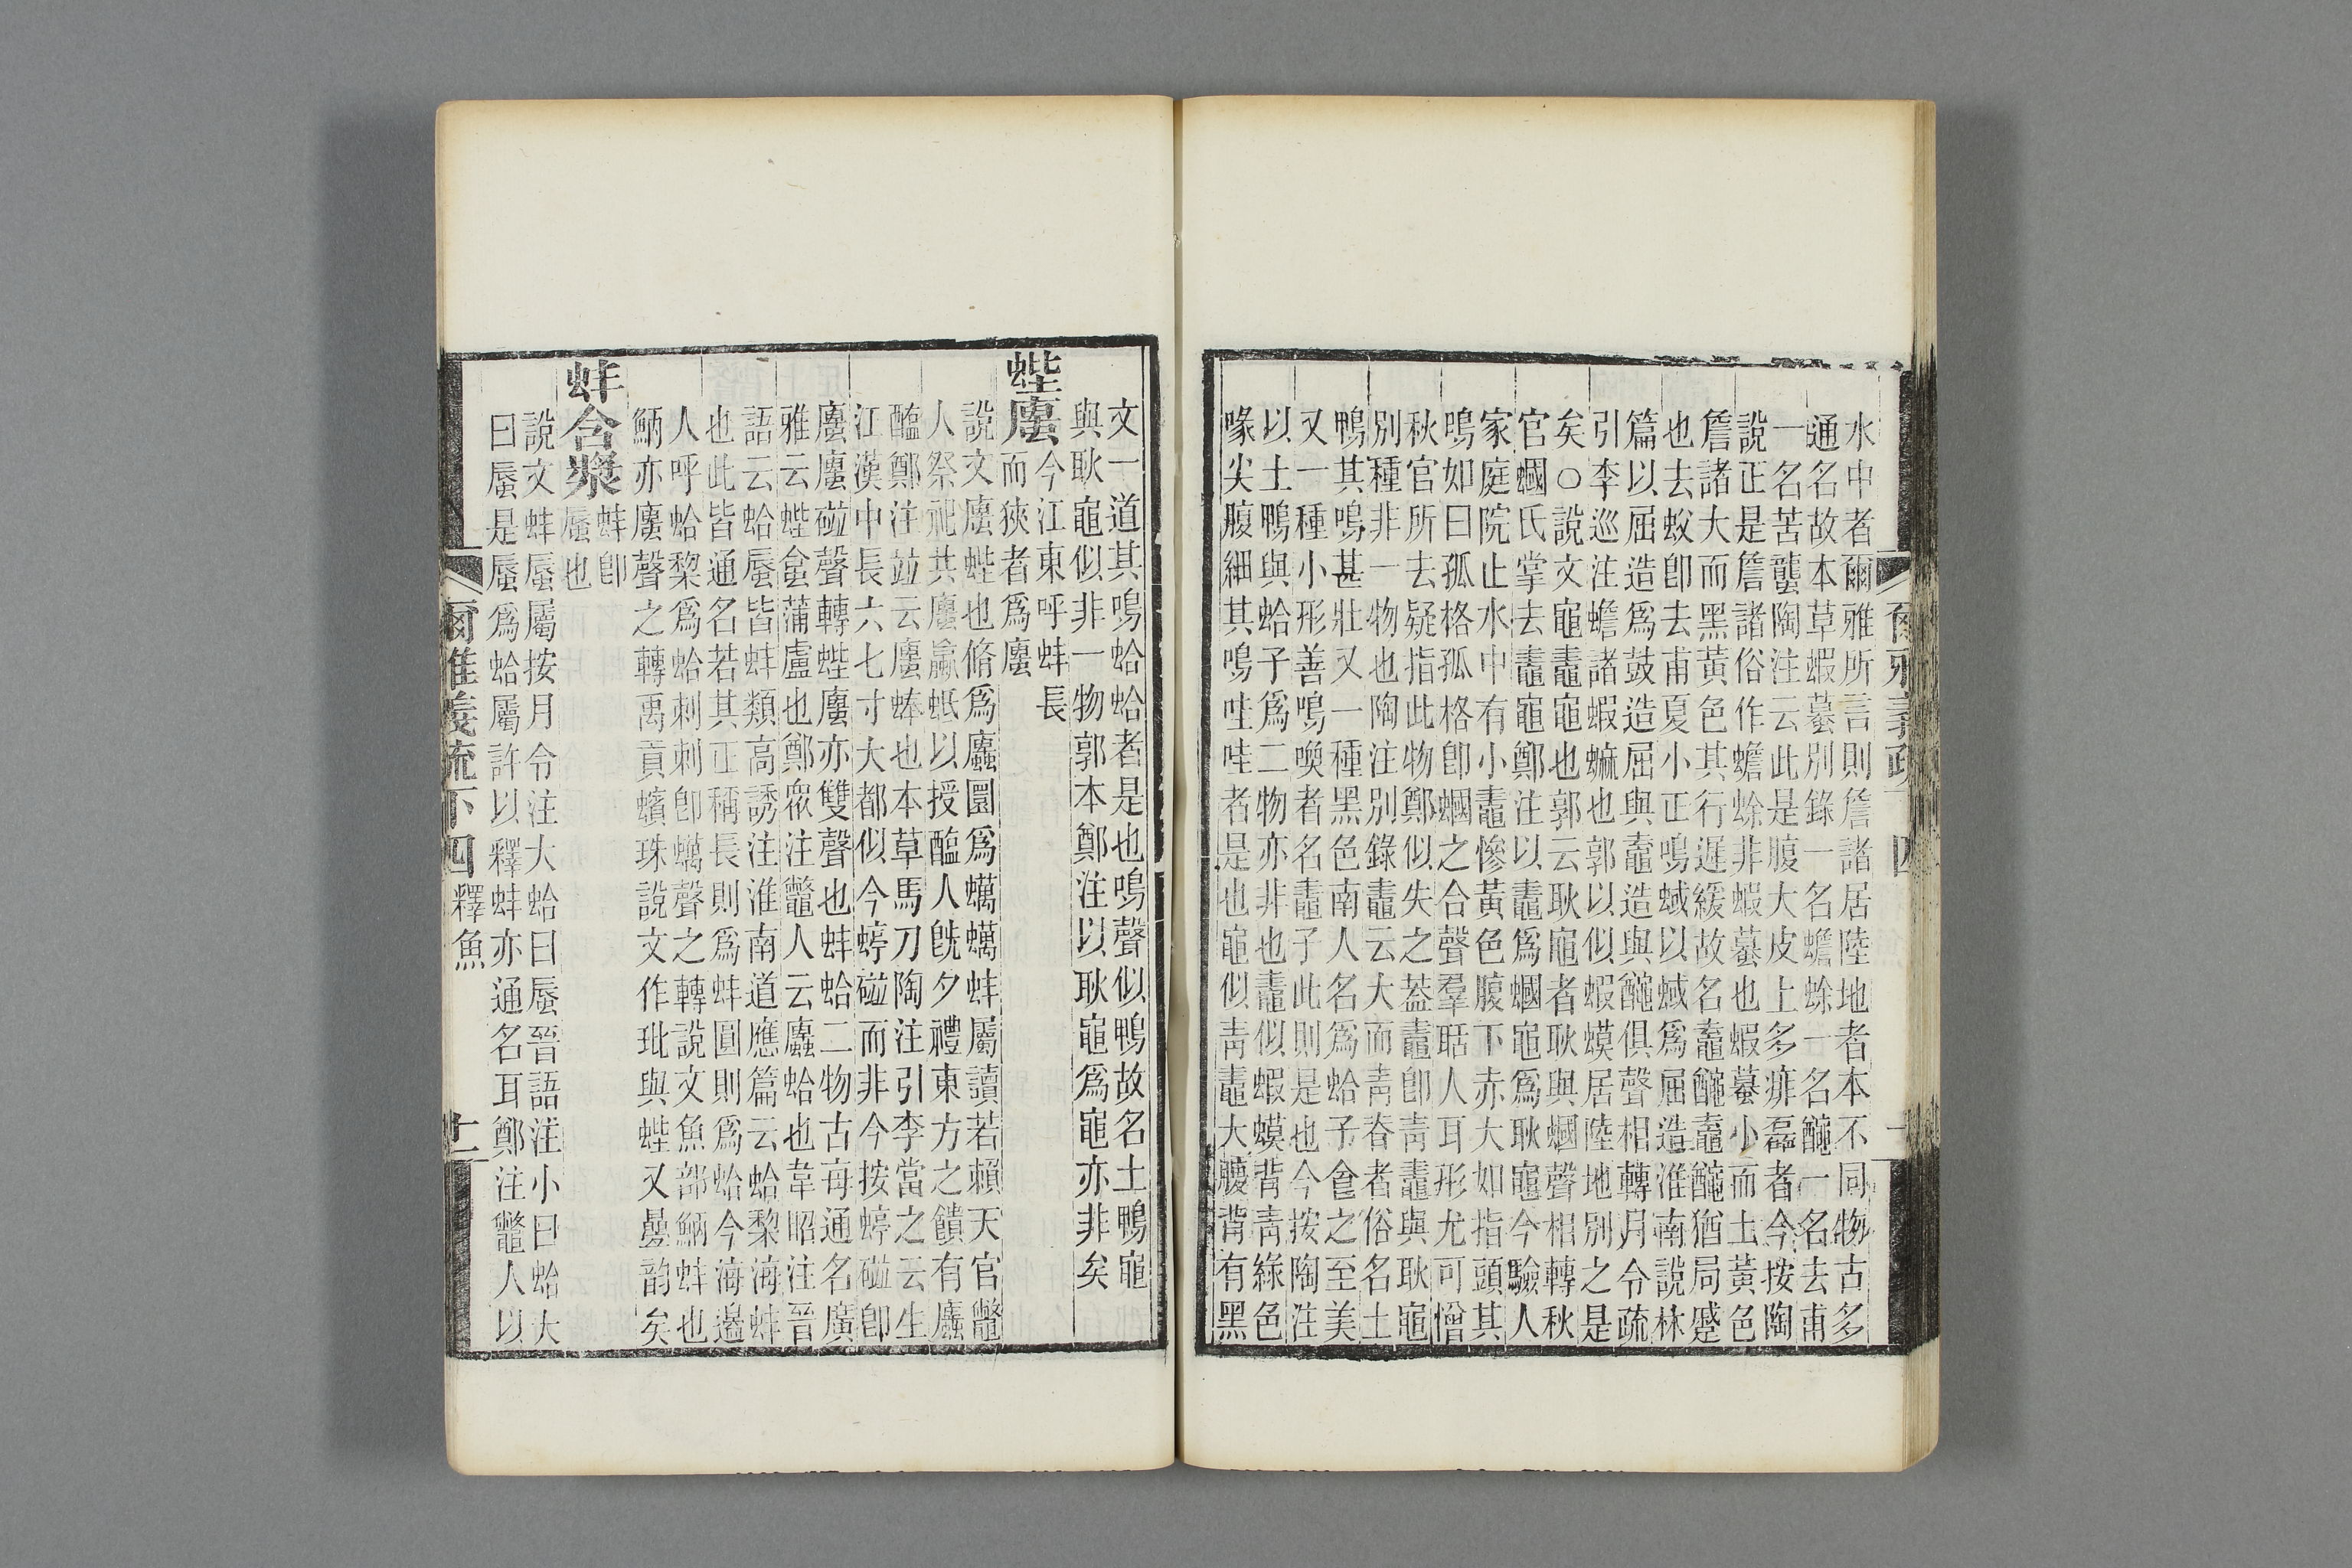 水中者爾雅所言則詹諸居陸地者本不同物古多
通名故本草蝦蟇別錄一名蟾蜍一名𪓰一名去甫
一名苦蠪陶注云此是腹大皮上多痱磊者今按陶
說正是詹諸俗作蟾蜍非蝦蟇也蝦蟇小而土黃色
詹諸大而黑黃色其行遲緩故名鼀𪓰鼀𪓰猶局蹙
也去蚁卽去甫夏小正鳴蜮以蜮爲屈造淮南說林
篇以屈造爲鼓造屈與鼀造與𪓰俱聲相轉月令疏
引李巡注蟾諸蝦蟆也郭以似蝦蟆居陸地別之是
矣○說文黽鼃黽也郭云耿黽者耿與蟈聲相轉秋
官蟈氏掌去鼃黽鄭注以鼃爲蟈黽爲耿黽今驗人
家庭院止水中有小鼃慘黃色腹下赤大如指頭其
鳴如曰孤格孤格卽蟈之合聲羣聒人耳形尤可憎
秋官所去疑指此物鄭似失之葢鼃卽靑鼃與耿黽
別種非一物也陶注別錄鼃云大而靑脊者俗名土
鴨其鳴甚壯又一種黑色南人名爲蛤子食之至美
又一種小形善鳴喚者名鼃子此則是也今按陶注
以土鴨與蛤子爲二物亦非也鼃似蝦蟆背靑綠色
喙尖腹細其鳴哇哇者是也黽似靑鼃大腹背有黑
爾雅義疏 四
文一道其鳴蛤蛤者是也鳴聲似鴨故名土鴨黽
與耿黽似非一物郭本鄭注以耿黽爲黽亦非矣
蜌螷
今江東呼蚌長
而狹者爲螷
說文螷蜌也脩爲螷圜爲蠣蠣蚌屬讀若賴天官鼈
人祭祀共螷蠃蚳以授醢人旣夕禮東方之饋有螷
醢鄭注竝云螷蜯也本草馬刀陶注引李當之云生
江漢中長六七寸大都似今蝏𧕿而非今按蝏𧕿卽
螷螷𧕿聲轉蜌螷亦雙聲也蚌蛤二物古每通名廣
雅云蜌蒲盧也鄭衆注鼈人云螷蛤也韋昭注晉
語云蛤蜃皆蚌類高誘注淮南道應篇云蛤棃海蚌
也此皆通名若其正稱長則爲蚌圓則爲蛤今海邊
人呼蛤棃爲蛤刺刺卽蠣聲之轉說文魚部蚌也
亦螷聲之轉禹貢蠙珠說文作玭與蜌又曡韵矣
蚌含漿
蚌卽
蜃也
說文蚌蜃屬按月令注大蛤曰蜃晉語注小曰蛤大
曰蜃是蜃爲蛤屬許以釋蚌亦通名耳鄭注鼈人以
爾雅義疏下四 釋魚